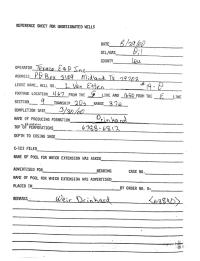 REFERENCE SHEET FOR UNDESIGNATED WELLS
DATE
OIL/GAS Oil
COUNTY Lea
OPERATOR Texaco E&P Inc
ADDRESS P O Box 3109 Midland Tx 79702
LEASE NAME, WELL NO. L. Van Etten #
FOOTAGE LOCATION 467 FROM THE S LINE AND FROM THE E LINE
SECTION 9 TOWNSHIP 20S RANGE 37E
COMPLETION DATE
NAME OF PRODUCING FORMATION Drinkard
TOP OF PERFORATIONS 6788-6812
DEPTH TO CASING SHOE
C-123 FILED
NAME OF POOL FOR WHICH EXTENSION WAS ASKED
ADVERTISED FOR HEARING CASE NO.
NAME OF POOL FOR WHICH EXTENSION WAS ADVERTISED
PLACED IN BY ORDER NO. R-
REMARKS Weir Drinkard